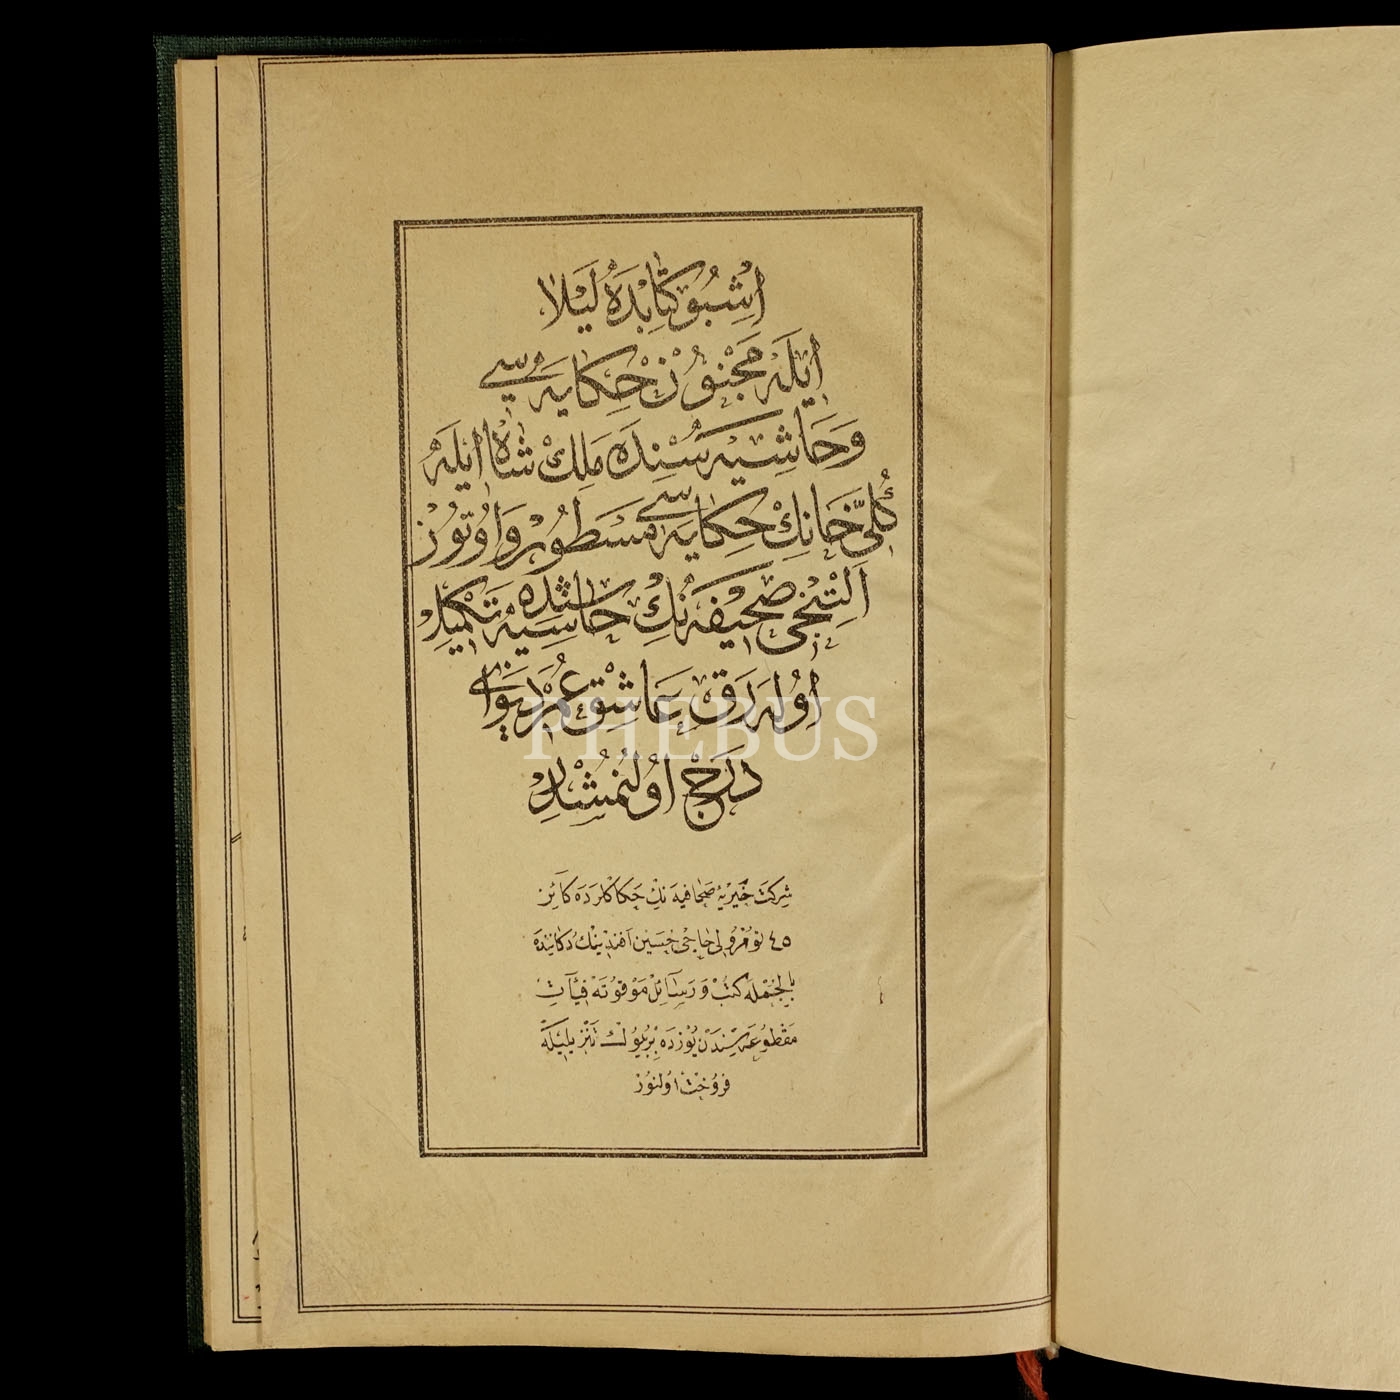 اِشبُو كتَابدَه لَيلَا
اِيلَه مَجْنُونْ حِكَايَه سِي
وَحَاشِيَه سِنْدَه مَلِكْ شَاهْ اِيلَه
كُلِّي خَانِكْ حِكَايَه سِي مَسْطُورْ وَاُوتُوزْ
اَلتِنجِي صَحِيفَه نِكْ حَاشِيَه سِنده تَكْمِيل
اُولَه رَقْ عَاشِقْ عُمَرْ دِيوَانِي
دَرجْ اُولُنمُشْدِرْ
شِركَت خَيْرِيَهٔ صَحَافِيَه نِكْ حَكَاكْلَرْدَه كَائِنْ
٤٥ نُومْرُولِي حَاجِي حُسَيْن اَفَنْدِينِكْ دُكَانِنْدَه
بِالْجُمْلَه كُتُبْ وَ رَسَائِلْ مَوْقُوتَه فِيئَاتِ
مَقْطُوعَه سِنْدَنْ يُوزْدَه بِرْ يُوكْ تَنْزِيلِيلَه
فُرُوخْتْ اُولنُورْ
PHEBUS